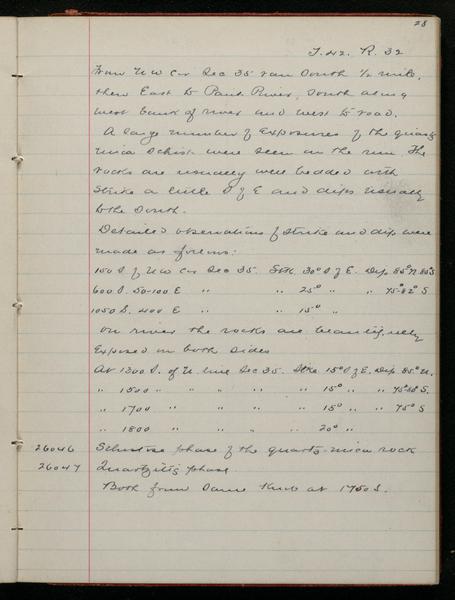 28
T. 42. R. 32
From N W Cor Sec 35 ran South 1/2 mile,
then East to Paint River, South along
west bank of river and west to road.
A large number of exposures of the quartz
mica schist were seen on the run. The
rocks are usually were bedded with
strike a little S of E and dips usually
to the South.
Detailed observations of strike and dip were
made as follows:
150 S. of N W Cor Sec 35. Stk. 30° S of E. Dip 85° N 80° S
600 S. 50-100 E " " 25° " " 75° 82° S
1050 S. 400 E " " 15° "
On river the rocks are beautifully
exposed on both sides
At 1300 S. of N. line Sec 35. Stke 15° S of E. Dip 85° N.
" 1500 " " " " " 15° " " 75° 80° S.
" 1700 " " " " " 15° " " 75° S
" 1800 " " " " " 20° "
26046 Schistose phase of the quartz-mica rock
26047 Quartzitic phase
Both from same knob at 1750 S.